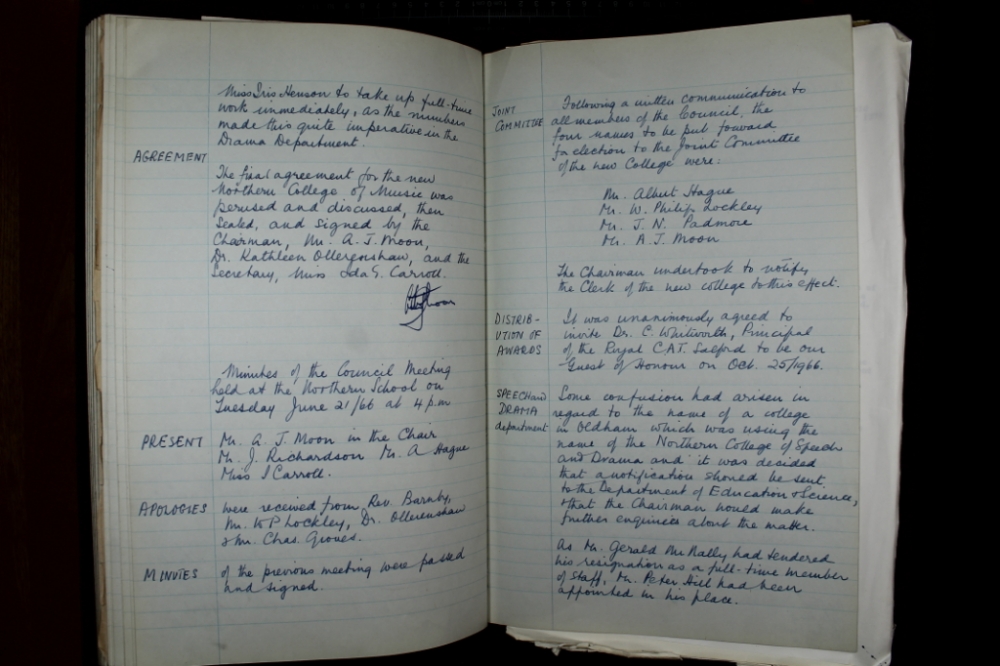 Miss Iris Henson to take up full-time
work immediately, as the numbers
made this quite imperative in the
Drama Department.
AGREEMENT
The final agreement for the new
Northern College of Music was
perused and discussed, then
sealed, and signed by the
Chairman, Mr. A. J. Moon,
Dr. Kathleen Ollerenshaw, and the
Secretary, Miss Ida G. Carroll.
Minutes of the Council Meeting
held at the Northern School on
Tuesday June 21/66 at 4 p.m
PRESENT Mr. A. J. Moon in the Chair
Mr. J. Richardson Mr. A Hague
Miss I Carroll.
APOLOGIES were received from Rev. Barnby,
Mr. W P Lockley, Dr. Ollerenshaw
& Mr. Chas. Groves.
MINVTES of the previous meeting were passed
and signed.
JOINT COMMITTEE
Following a written communication to
all members of the Council, the
four names to be put forward
for election to the Joint Committee
of the new College were:
Mr. Albert Hague
Mr. W. Philip Lockley
Mr. J. N. Padmore
Mr. A. J. Moon
The Chairman undertook to notify
the Clerk of the new college to this effect.
DISTRIB-
VTION OF
AWARDS
It was unanimously agreed to
invite Dr. C. Whitworth, Principal
of the Royal C.A.T. Salford to be our
Guest of Honour on Oct. 25/1966.
SPEECH and
DRAMA
department
Some confusion had arisen in
regard to the name of a college
in Oldham which was using the
name of the Northern College of Speech
and Drama and it was decided
that a notification should be sent
to the Department of Education & Science,
& that the Chairman would make
further enquiries about the matter.
As Mr. Gerald McNally had tendered
his resignation as a full-time member
of staff, Mr. Peter Hill had been
appointed in his place.